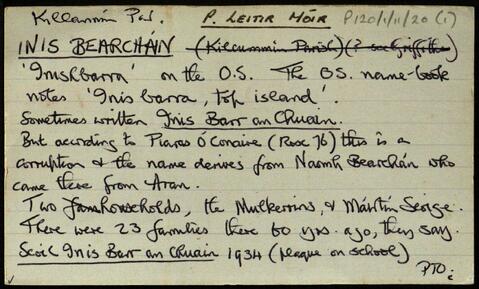 Killannin Par. P. LEITIR MÓIR P120/1/11/20 (1)
INIS BEARCHAIN (Kilcummin Parish) (? see Griffith)
'Inishbarra' on the O.S. The OS. name-book
notes 'Inis barra, top island'.
Sometimes written Inis Barr an Chuain.
But according to Piaras Ó'Conaire (Ros 76) this is a
corruption & the name derives from Naomh Bearchán who
came there from Aran.
Two households, the Mulkerrins, & Máirtín Seoige.
There were 23 families there 60 yrs. ago, they say.
Scoil Inis Barr an Chuain 1934 (plaque on school)
PTO